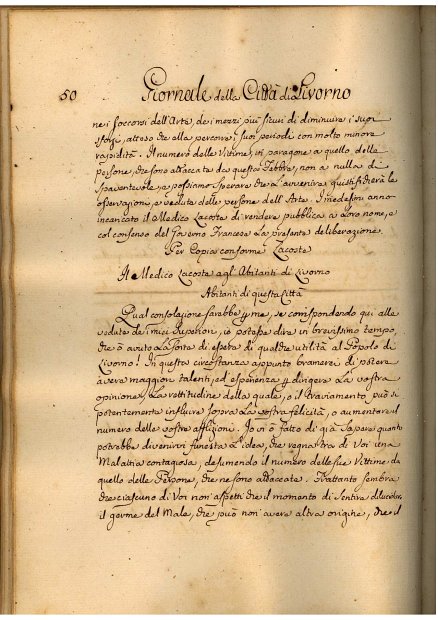 50 Giornale della Città di Livorno
ne i soccorsi dell'Arte, de i mezzi più sicuri di diminuire i suoi
sforzi, atteso che alla percorre i suoi periodi con molto minore
rapidità. Il numero delle Vittime, in paragone a quello delle
persone, che sono attaccate da questa Febbre, non a nulla di
spaventevole, e possiamo sperare che l'avvenire giustificherà le
osservazioni, e vedute delle persone dell'Arte. I medesimi anno
incaricato il Medico Lacoste di rendere pubblica a Loro nome, e
col consenso del Governo Francese La presente deliberazione.
Per Copia conforme Lacoste
Il Medico Lacoste agl'Abitanti di Livorno
Abitanti di questa Città
Qual consolazione sarebbe p me, se corrispondendo qui alle
vedute de i miei Superiori, io potesse dire in brevissimo tempo,
che ò avuto La sorte di essere di qualche utilità al Popolo di
Livorno! In questa circostanza appunto bramerei di potere
avere maggiori talenti, ed esperienza p dirigere La vostra
opinione. La rettitudine della quale, o il traviamento, può sì
potentemente influire sopra La vostra felicità, o aumentare il
numero delle vostre afflizioni. Io vi ò fatto di già sapere quanto
potrebbe divenirvi funesta L'idea, che regna tra di Voi una
Malattia contagiosa, desumendo il numero delle sue Vittime da
quello delle Persone, che ne sono attaccate. Frattanto sembra
che ciascuno di Voi non aspetti che il momento di sentire dilucidare
il germe del Male, che può non avere altra origine, che il